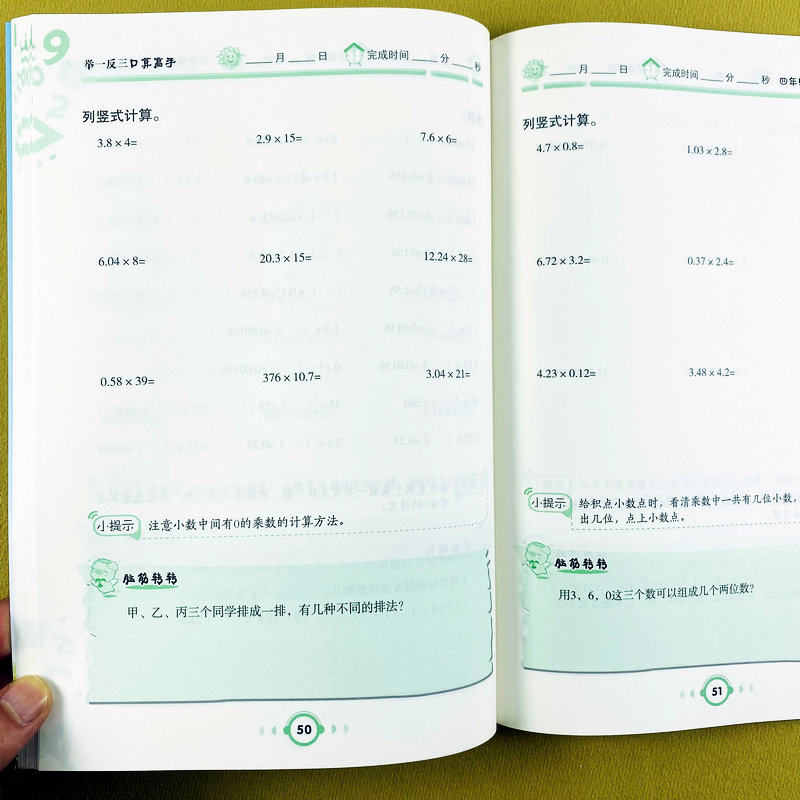 举一反三口算高手
____月____日 完成时间____分____秒
列竖式计算。
3.8×4= 2.9×15= 7.6×6=
6.04×8= 20.3×15= 12.24×28=
0.58×39= 376×10.7= 3.04×21=
小提示 注意小数中间有0的乘数的计算方法。
脑筋转转
甲、乙、丙三个同学排成一排，有几种不同的排法？
50
____月____日 完成时间____分____秒 四年
列竖式计算。
4.7×0.8= 1.03×2.8=
6.72×3.2= 0.37×2.4=
4.23×0.12= 3.48×4.2=
小提示 给积点小数点时，看清乘数中一共有几位小数，
出几位，点上小数点。
脑筋转转
用3，6，0这三个数可以组成几个两位数？
51